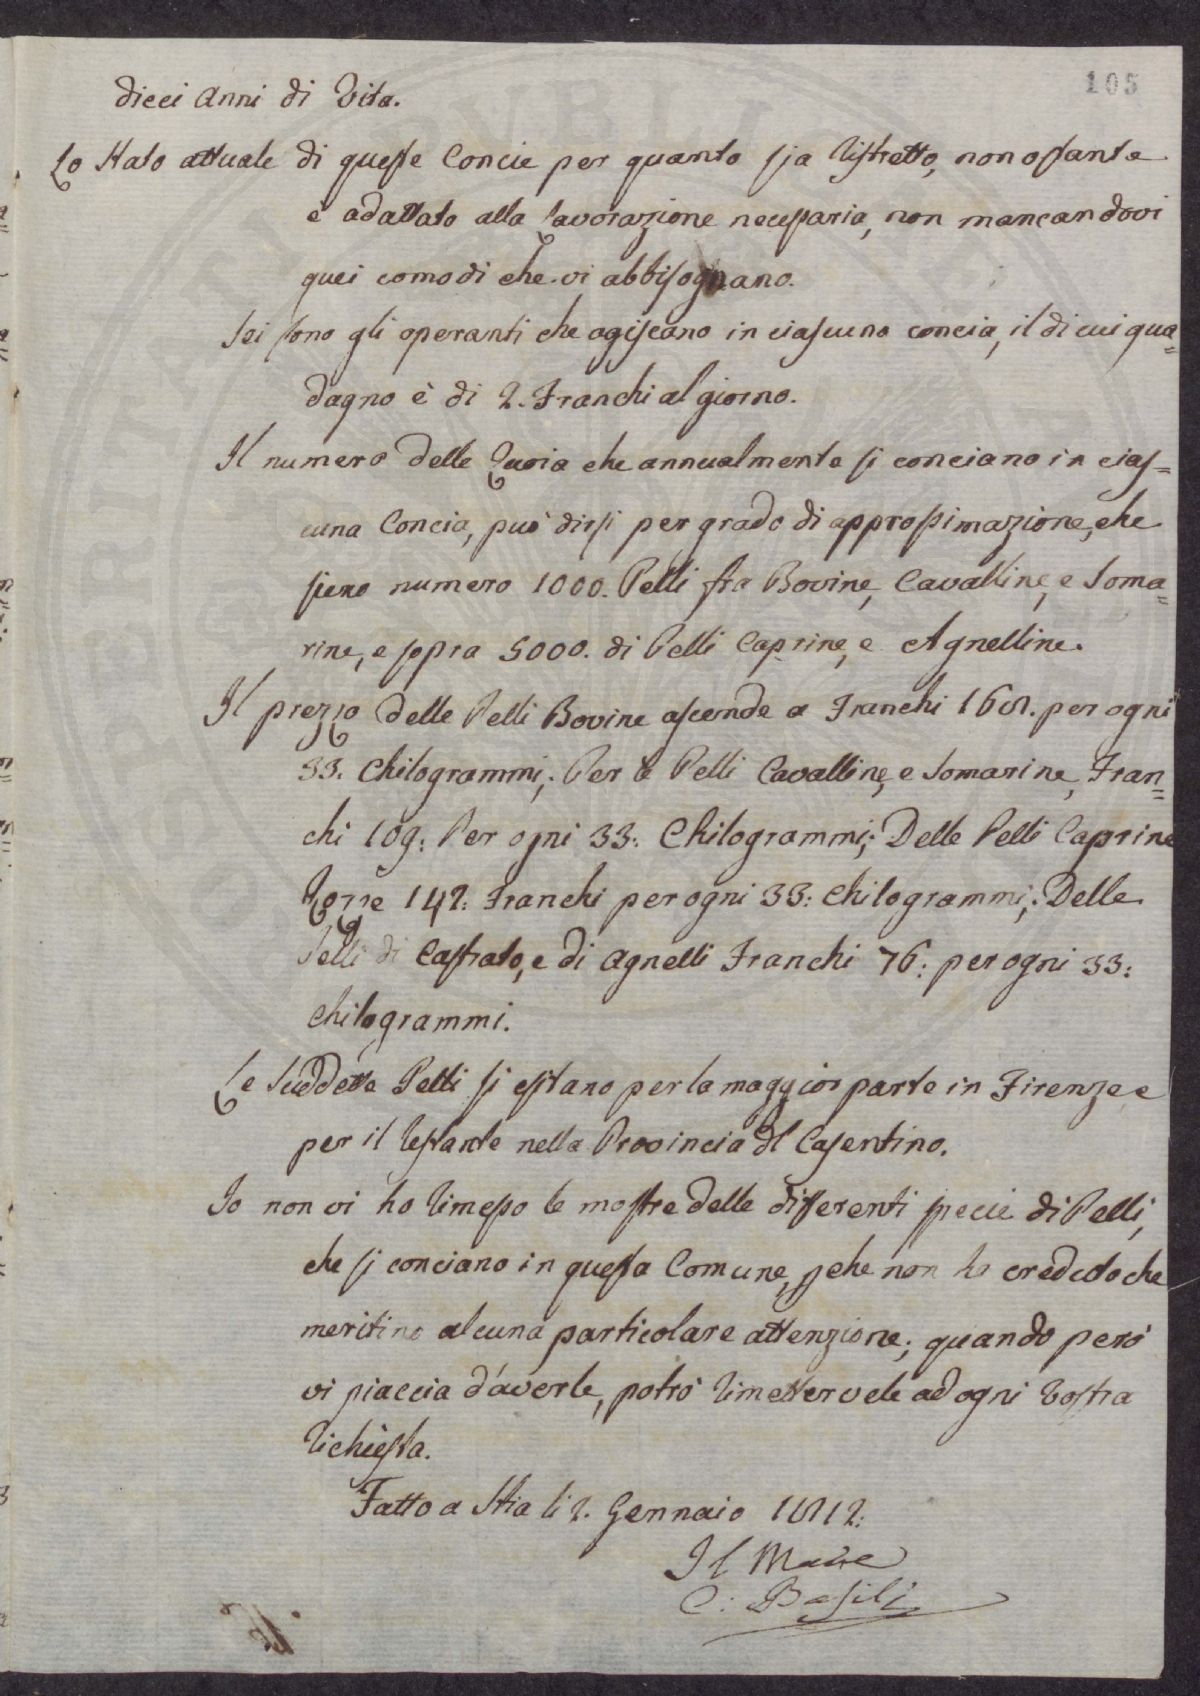 105
dieci Anni di Vita.
Lo Stato attuale di queste Concie per quanto sia ristretto, non ostante
è adattato alla lavorazione necessaria, non mancandovi
quei comodi che vi abbisognano.
Sei sono gli operanti che agiscano in ciascuna concia, il di cui gua=
dagno è di 2. Franchi al giorno.
Il numero delle Quoia che annualmente si conciano in cias=
cuna Concia, può dirsi per grado di approssimazione, che
siero numero 1000. Pelli fra Bovine, Cavalline, e Soma=
rine, e sopra 5000. di Pelli Caprine, e Agnelline.
Il prezzo delle Pelli Bovine ascende a Franchi 168. per ogni
33. Chilogrammi; Per le Pelli Cavalline, e Somarine, Fran=
chi 109: Per ogni 33: Chilogrammi; Delle Pelli Caprine
Rozze 142: Franchi per ogni 33: Chilogrammi; Delle
Pelli di Castrato, e di Agnelli Franchi 76: per ogni 33:
Chilogrammi.
Le Suddette Pelli si esitano per la maggior parte in Firenze e
per il restante nella Provincia del Casentino.
Io non vi ho rimesso le mostre delle differenti specie di Pelli,
che si conciano in questa Comune, pche non ho creduto che
meritino alcuna particolare attenzione; quando però
vi piaccia d'averle, potrò rimettervele ad ogni Vostra
richiesta.
Fatto a Stia li 2. Gennaio 1812:
Il Maire
C: Basili